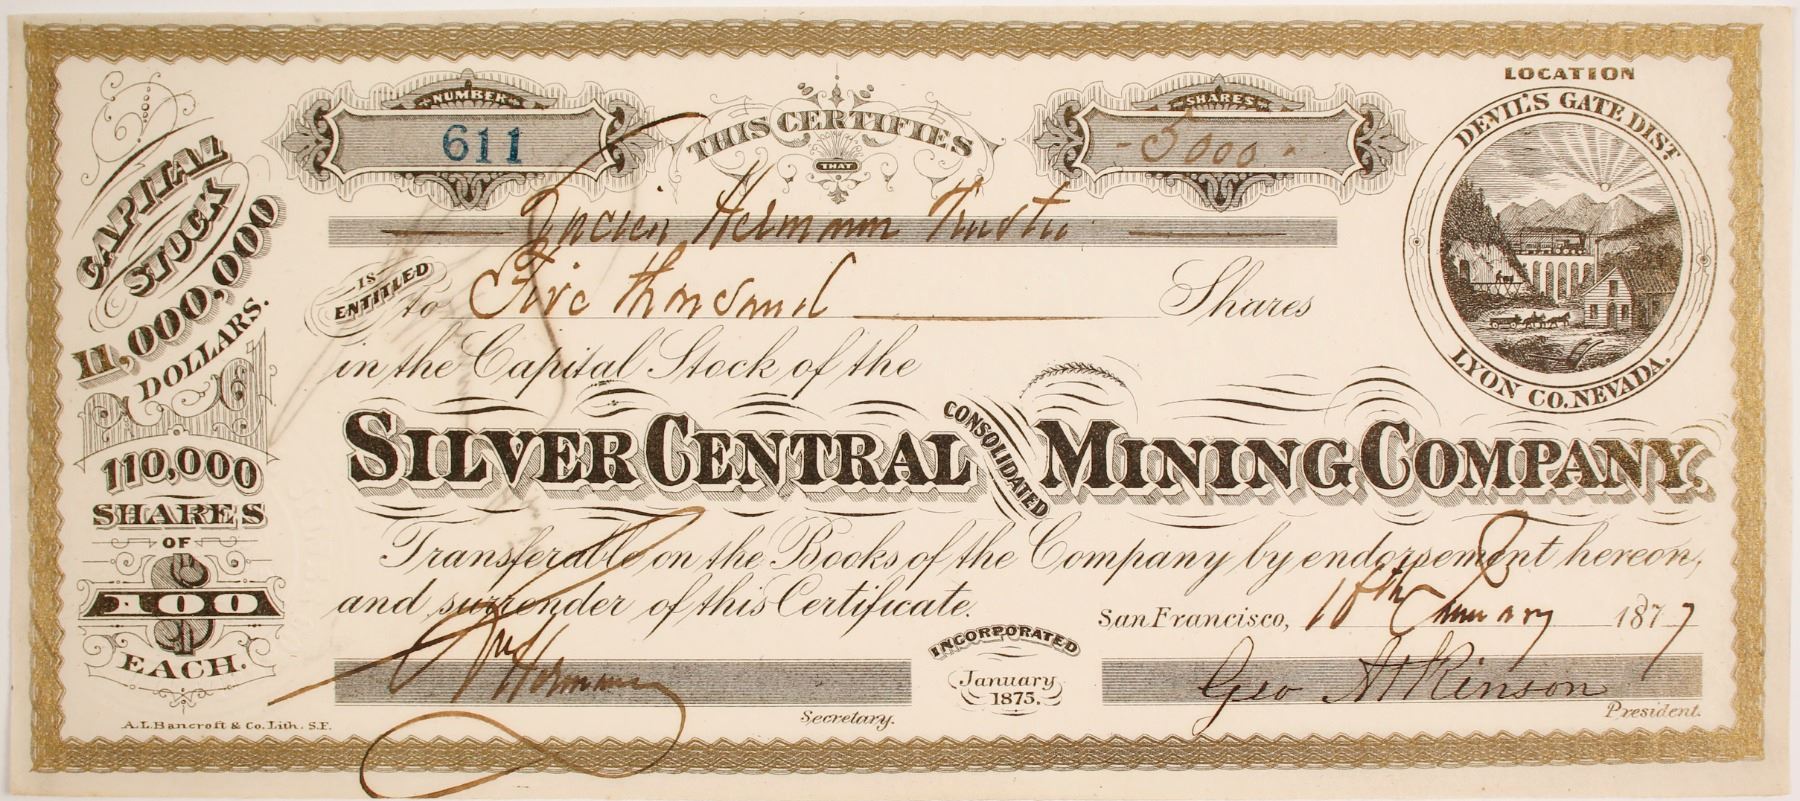 CAPITAL
STOCK
11,000,000
DOLLARS.
110,000
SHARES
OF
100
EACH.
NUMBER
611
THIS CERTIFIES
THAT
SHARES
- 5000 -
LOCATION
DEVIL'S GATE DIST.
LYON CO. NEVADA.
Lucien Hermann Trustee
IS
ENTITLED
to Five thousand Shares
in the Capital Stock of the
SILVER CENTRAL CONSOLIDATED MINING COMPANY.
Transferable on the Books of the Company by endorsement hereon,
and surrender of this Certificate.
San Francisco, 18th January 1877
INCORPORATED
January
1875.
Hermann
Secretary.
Geo Atkinson
President.
A.L. Bancroft & Co. Lith. S.F.